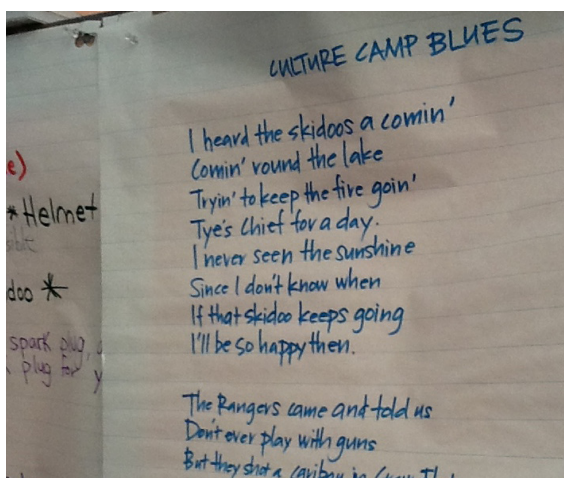 CULTURE CAMP BLUES
I heard the skidoos a comin'
Comin' round the lake
Tryin' to keep the fire goin'
Tye's Chief for a day.
I never seen the sunshine
Since I don't know when
If that skidoo keeps going
I'll be so happy then.
The Rangers came and told us
Don't ever play with guns
But they shot a caribou in
e)
* Helmet
doo *
spark plug,
plug for